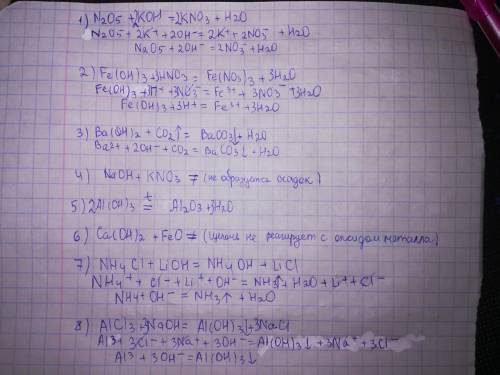 1) N2O5 + 2KOH = 2KNO3 + H2O
N2O5 + 2K⁺ + 2OH⁻ = 2K⁺ + 2NO3⁻ + H2O
N2O5 + 2OH⁻ = 2NO3⁻ + H2O
2) Fe(OH)3 + 3HNO3 = Fe(NO3)3 + 3H2O
Fe(OH)3 + 3H⁺ + 3NO3⁻ = Fe³⁺ + 3NO3⁻ + 3H2O
Fe(OH)3 + 3H⁺ = Fe³⁺ + 3H2O
3) Ba(OH)2 + CO2↑ = BaCO3↓ + H2O
Ba²⁺ + 2OH⁻ + CO2 = BaCO3↓ + H2O
4) NaOH + KNO3 ≠ (не образуется осадок)
5) 2Al(OH)3 =ᵗ Al2O3 + 3H2O
6) Ca(OH)2 + FeO ≠ (щелочь не реагирует с оксидом металла)
7) NH4Cl + LiOH = NH4OH + LiCl
NH4⁺ + Cl⁻ + Li⁺ + OH⁻ = NH3↑ + H2O + Li⁺ + Cl⁻
NH4⁺ OH⁻ = NH3↑ + H2O
8) AlCl3 + 3NaOH = Al(OH)3↓ + 3NaCl
Al³⁺ + 3Cl⁻ + 3Na⁺ + 3OH⁻ = Al(OH)3↓ + 3Na⁺ + 3Cl⁻
Al³⁺ + 3OH⁻ = Al(OH)3↓